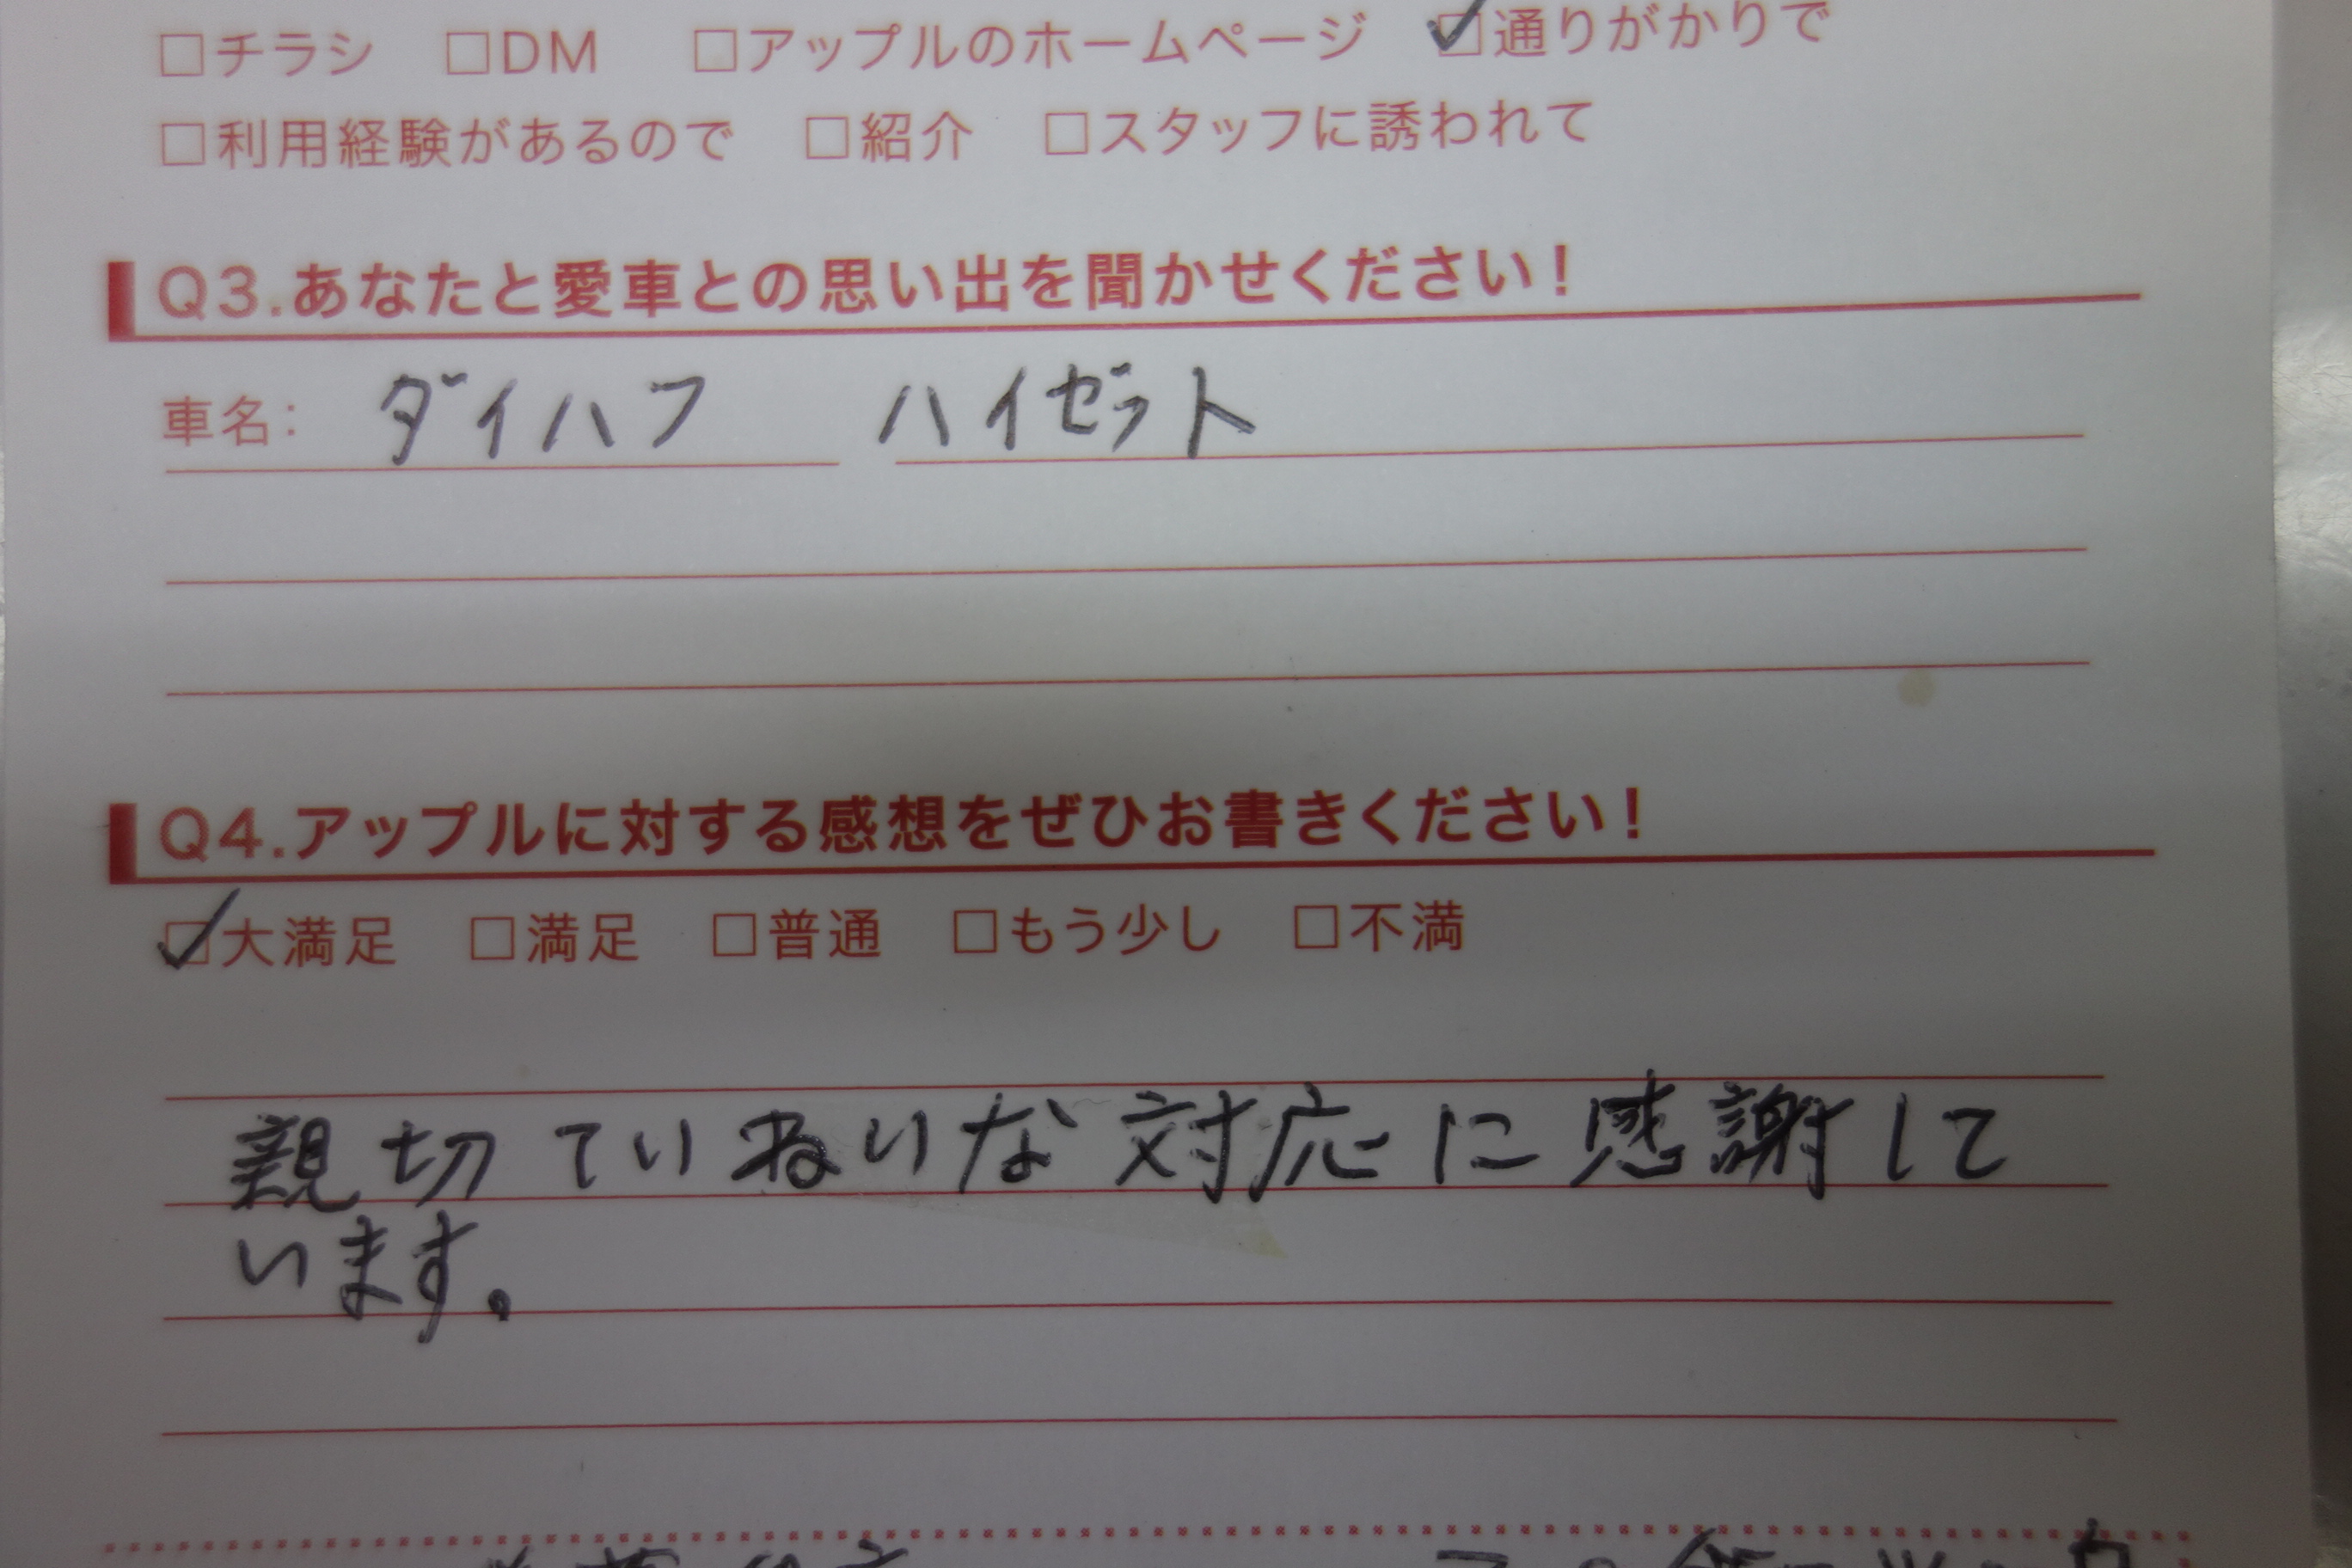 □チラシ □DM □アップルのホームページ ☑通りがかりで
□利用経験があるので □紹介 □スタッフに誘われて
Q3.あなたと愛車との思い出を聞かせください!
車名: ダイハフ ハイゼット
Q4.アップルに対する感想をぜひお書きください!
☑大満足 □満足 □普通 □もう少し □不満
親切ていねいな対応に感謝して
います。